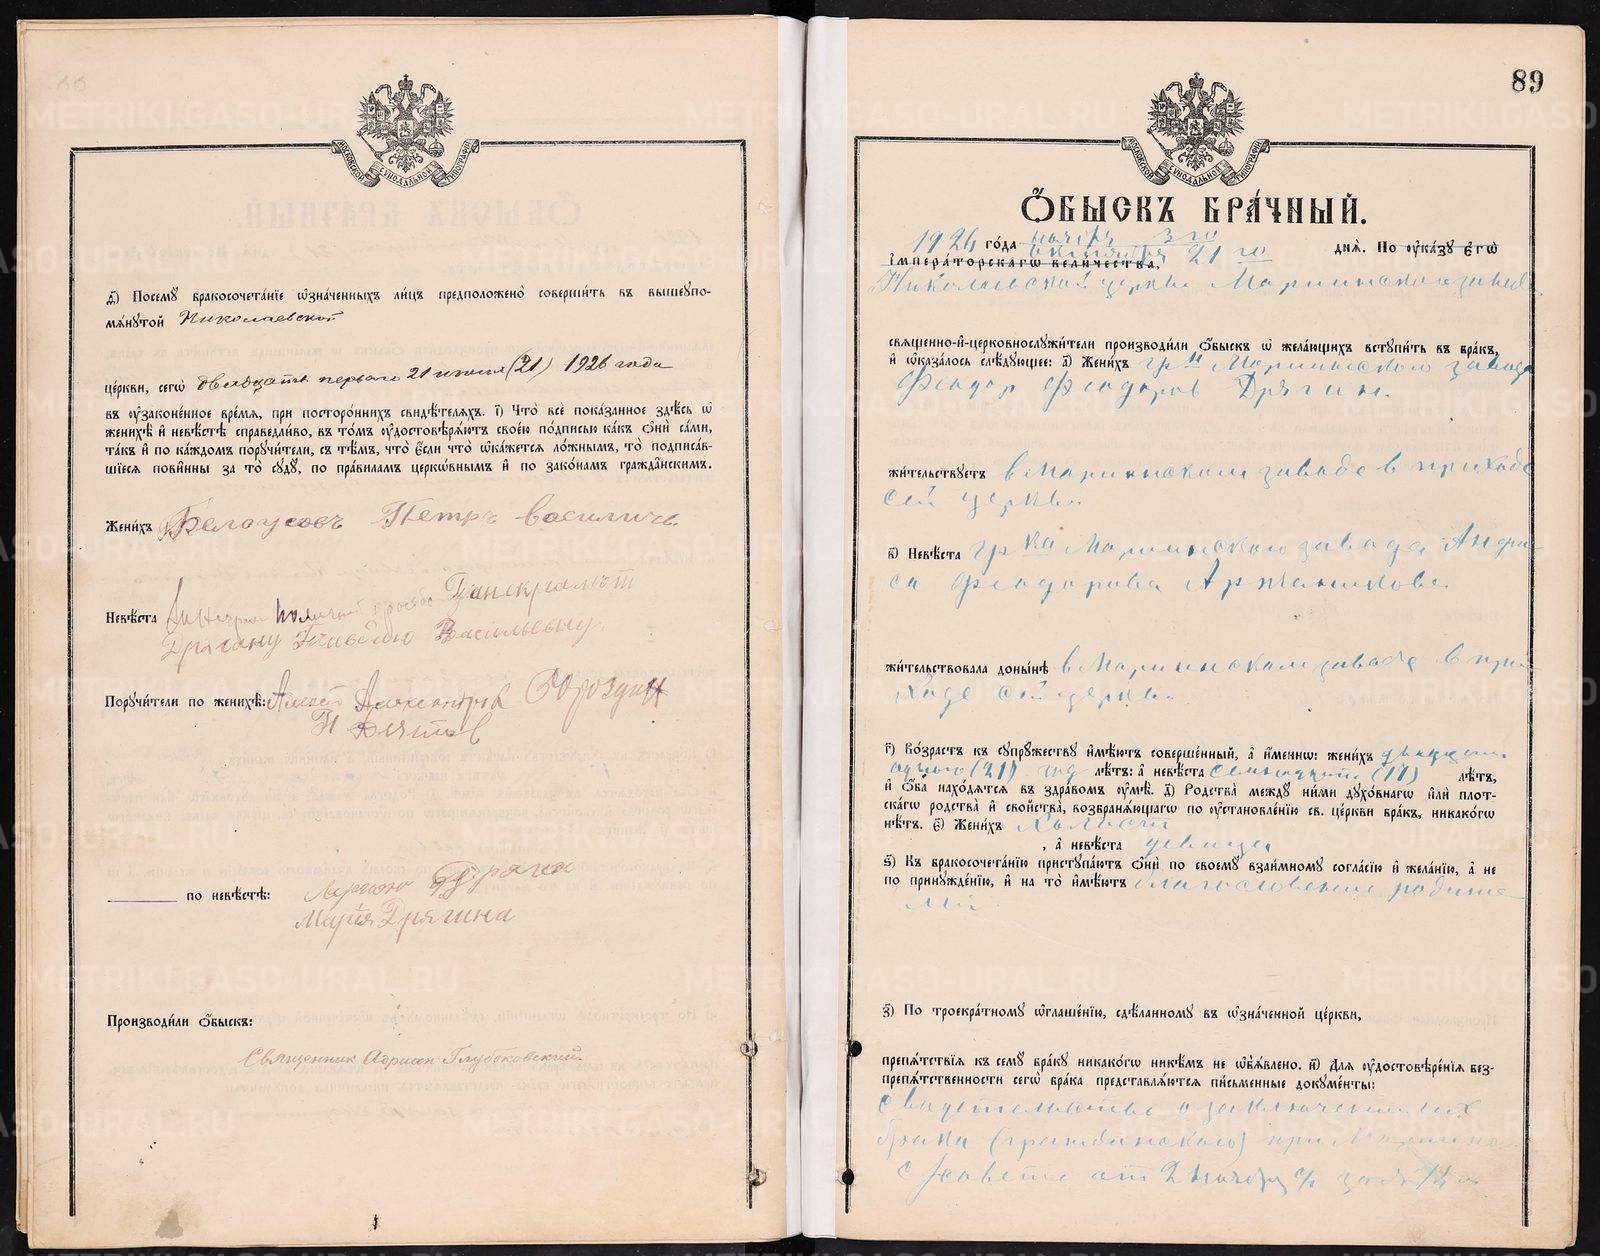 МОСКОВСКОЙ СѴНОДАЛЬНОЙ ТИПОГРАФІИ
д҃) Посемꙋ̀ бракосочета́нїе ѡ҆зна́ченныхъ ли́цъ предположено̀ соверши́ть въ вышеꙋпо-
мѧ́нꙋтой Николаевской
це́ркви, сегѡ̀ двадцать перваго 21 июня (21) 1926 года
въ ᲂу҆законе́нное вре́мѧ, при посторо́ннихъ свидѣ́телѧхъ. і҃) Что̀ всѐ пока́занное здѣ́сь ѡ҆
женихѣ̀ и҆ невѣ́стѣ справедли́во, въ то́мъ ᲂу҆достовѣрѧ́ютъ свое́ю по́дписью ка́къ ѻ҆нѝ са́ми,
та́къ и҆ по ка́ждомъ порꙋчи́тели, съ тѣ́мъ, что̀ є҆́сли что̀ ѡ҆ка́жетсѧ ло́жнымъ, то̀ подписа́в-
шїесѧ пови́нны за то̀ сꙋдꙋ̀, по пра́виламъ церко́внымъ и҆ по зако́намъ гражда́нскимъ.
Жени́хъ Белоусовъ Петръ Василичь
Невѣ́ста
Дрягину Васильевну
Порꙋчи́тели по женихѣ̀: Александров
по невѣ́стѣ:
Мария Дрягина
Производи́ли ѻ҆́быскъ:
Священник Адриан Глубоковский
89
МОСКОВСКОЙ СѴНОДАЛЬНОЙ ТИПОГРАФІИ
Ѻ҆́БЫСКЪ БРА́ЧНЫЙ.
1926 го́да ноября 3го октября 21го днѧ̀. По ᲂу҆ка́зꙋ є҆гѡ̀
і҆мпера́торскагѡ вели́чества,
Николаевской церкви Мариинского завода
свѧще́нно-и҆-церковнослꙋжи́тели производи́ли ѻ҆́быскъ ѡ҆ жела́ющихъ встꙋпи́ть въ бра́къ,
и҆ ѡ҆каза́лось слѣ́дꙋющее: а҃) Жени́хъ гр-н Мариинского завода
Феодор Феодоров Дрягин.
жи́тельствꙋетъ в Мариинском заводе в приходе
сей церкви
в҃) Невѣ́ста гр-ка Мариинского завода
Феодорова
жи́тельствовала доны́нѣ в Мариинском заводе в при-
ходе сей церкви
г҃) Во́зрастъ къ сꙋпрꙋ́жествꙋ и҆мѣ́ютъ соверше́нный, а҆ и҆́менно: жени́хъ двадцати
одного (21) год лѣ́тъ: а҆ невѣ́ста семнадцати (17) лѣ́тъ,
и҆ ѻ҆́ба нахо́дѧтсѧ въ здра́вомъ ᲂу҆мѣ̀. д҃) Родства̀ междꙋ̀ ни́ми дꙋхо́внагѡ и҆лѝ пло́т-
скагѡ родства̀ и҆ сво́йства, возбранѧ́ющагѡ по ᲂу҆становле́нїю св. це́ркви бра́къ, никако́гѡ
нѣ́тъ. є҃) Жени́хъ холост
, а҆ невѣ́ста девица
ѕ҃) Къ бракосочета́нїю пристꙋпа́ютъ ѻ҆нѝ по своемꙋ̀ взаи́мномꙋ согла́сїю и҆ жела́нїю, а҆ не
по принꙋжде́нїю, и҆ на то̀ и҆мѣ́ютъ благословение родите
лей
з҃) По троекра́тномꙋ ѡ҆глаше́нїю, сдѣ́ланномꙋ въ ѡ҆зна́ченной це́ркви,
препѧ́тствїѧ къ семꙋ̀ бра́кꙋ никако́гѡ никѣ́мъ не ѡ҆б̾ѧ́влено. и҃) Длѧ ᲂу҆достовѣре́нїѧ без-
препѧ́тственности сегѡ̀ бра́ка представлѧ́ютсѧ пи́сьменные докꙋме́нты:
свидетельство о заключении их
брака (гражданского) при
Совете от 2 ноября с/г за №
METRIKI.GASO-URAL.RU